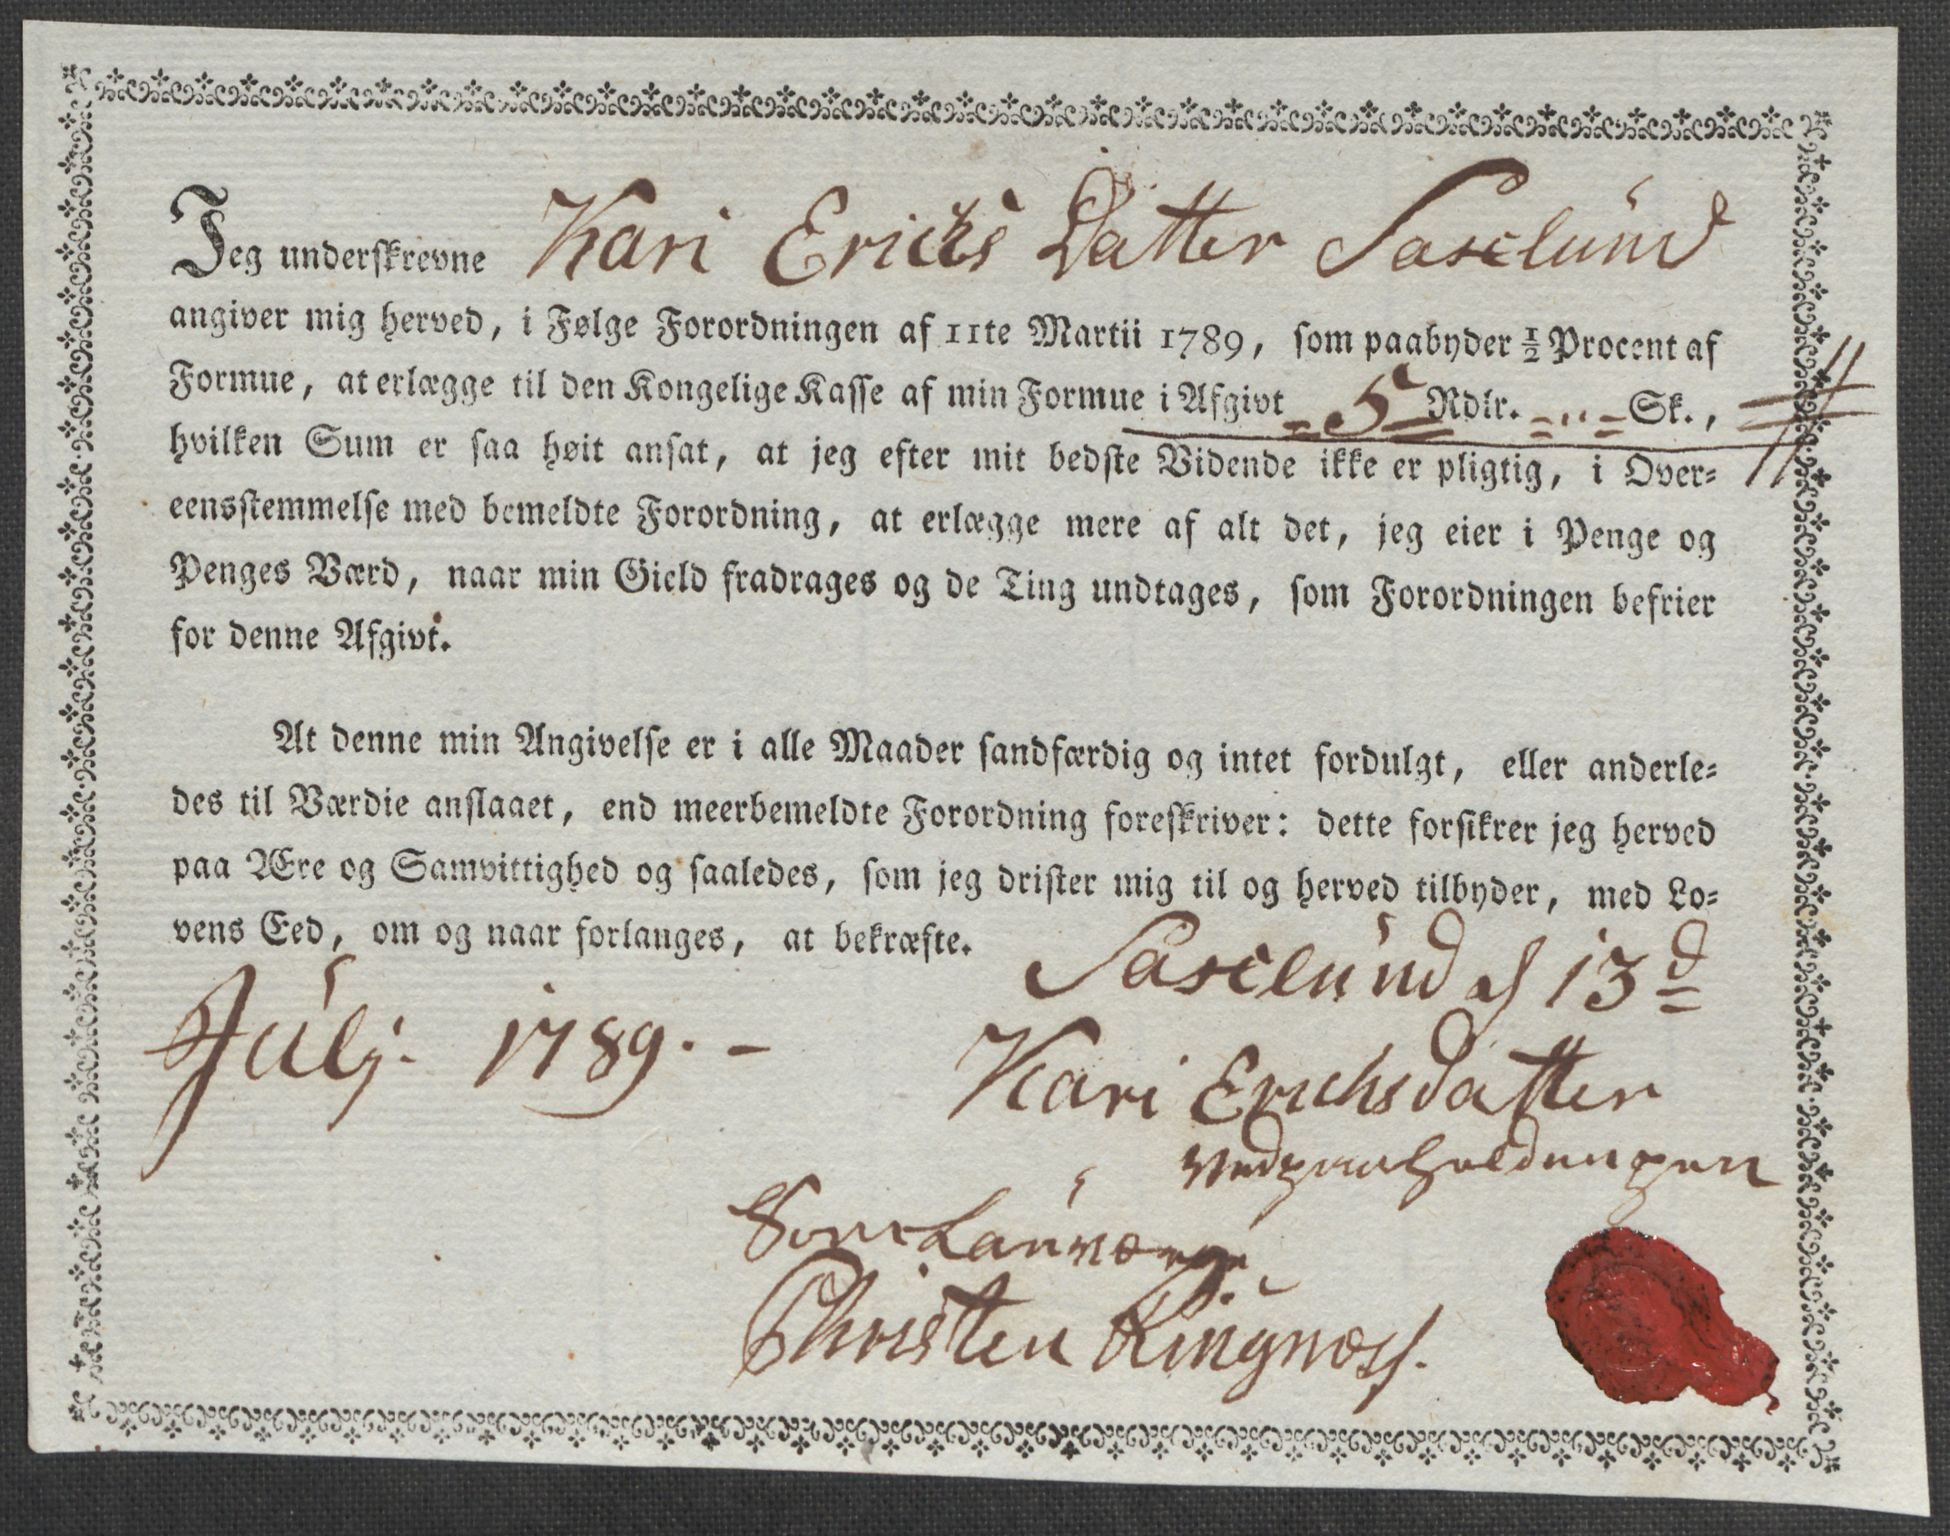 Jeg underskrevne Kari Erichs Datter Saxelund
angiver mig herved, i Følge Forordningen af 11te Martii 1789, som paabyder ½ Procent af
Formue, at erlægge til den Kongelige Kasse af min Formue i Afgivt = 5 = Rdlr. = „ = Sk.,
hvilken Sum er saa høit ansat, at jeg efter mit bedste Vidende ikke er pligtig, i Over=
eensstemmelse med bemeldte Forordning, at erlægge mere af alt det, jeg eier i Penge og
Penges Værd, naar min Gield fradrages og de Ting undtages, som Forordningen befrier
for denne Afgivt.
At denne min Angivelse er i alle Maader sandfærdig og intet fordulgt, eller anderle=
des til Værdie anslaaet, end meerbemeldte Forordning foreskriver: dette forsikrer jeg herved
paa Ære og Samvittighed og saaledes, som jeg drister mig til og herved tilbyder, med Lo=
vens Eed, om og naar forlanges, at bekræfte.
Saxelund d 13d
Julj. 1789. -
Kari Erichsdatter
Som Laugværge
Christen Ringnæss.